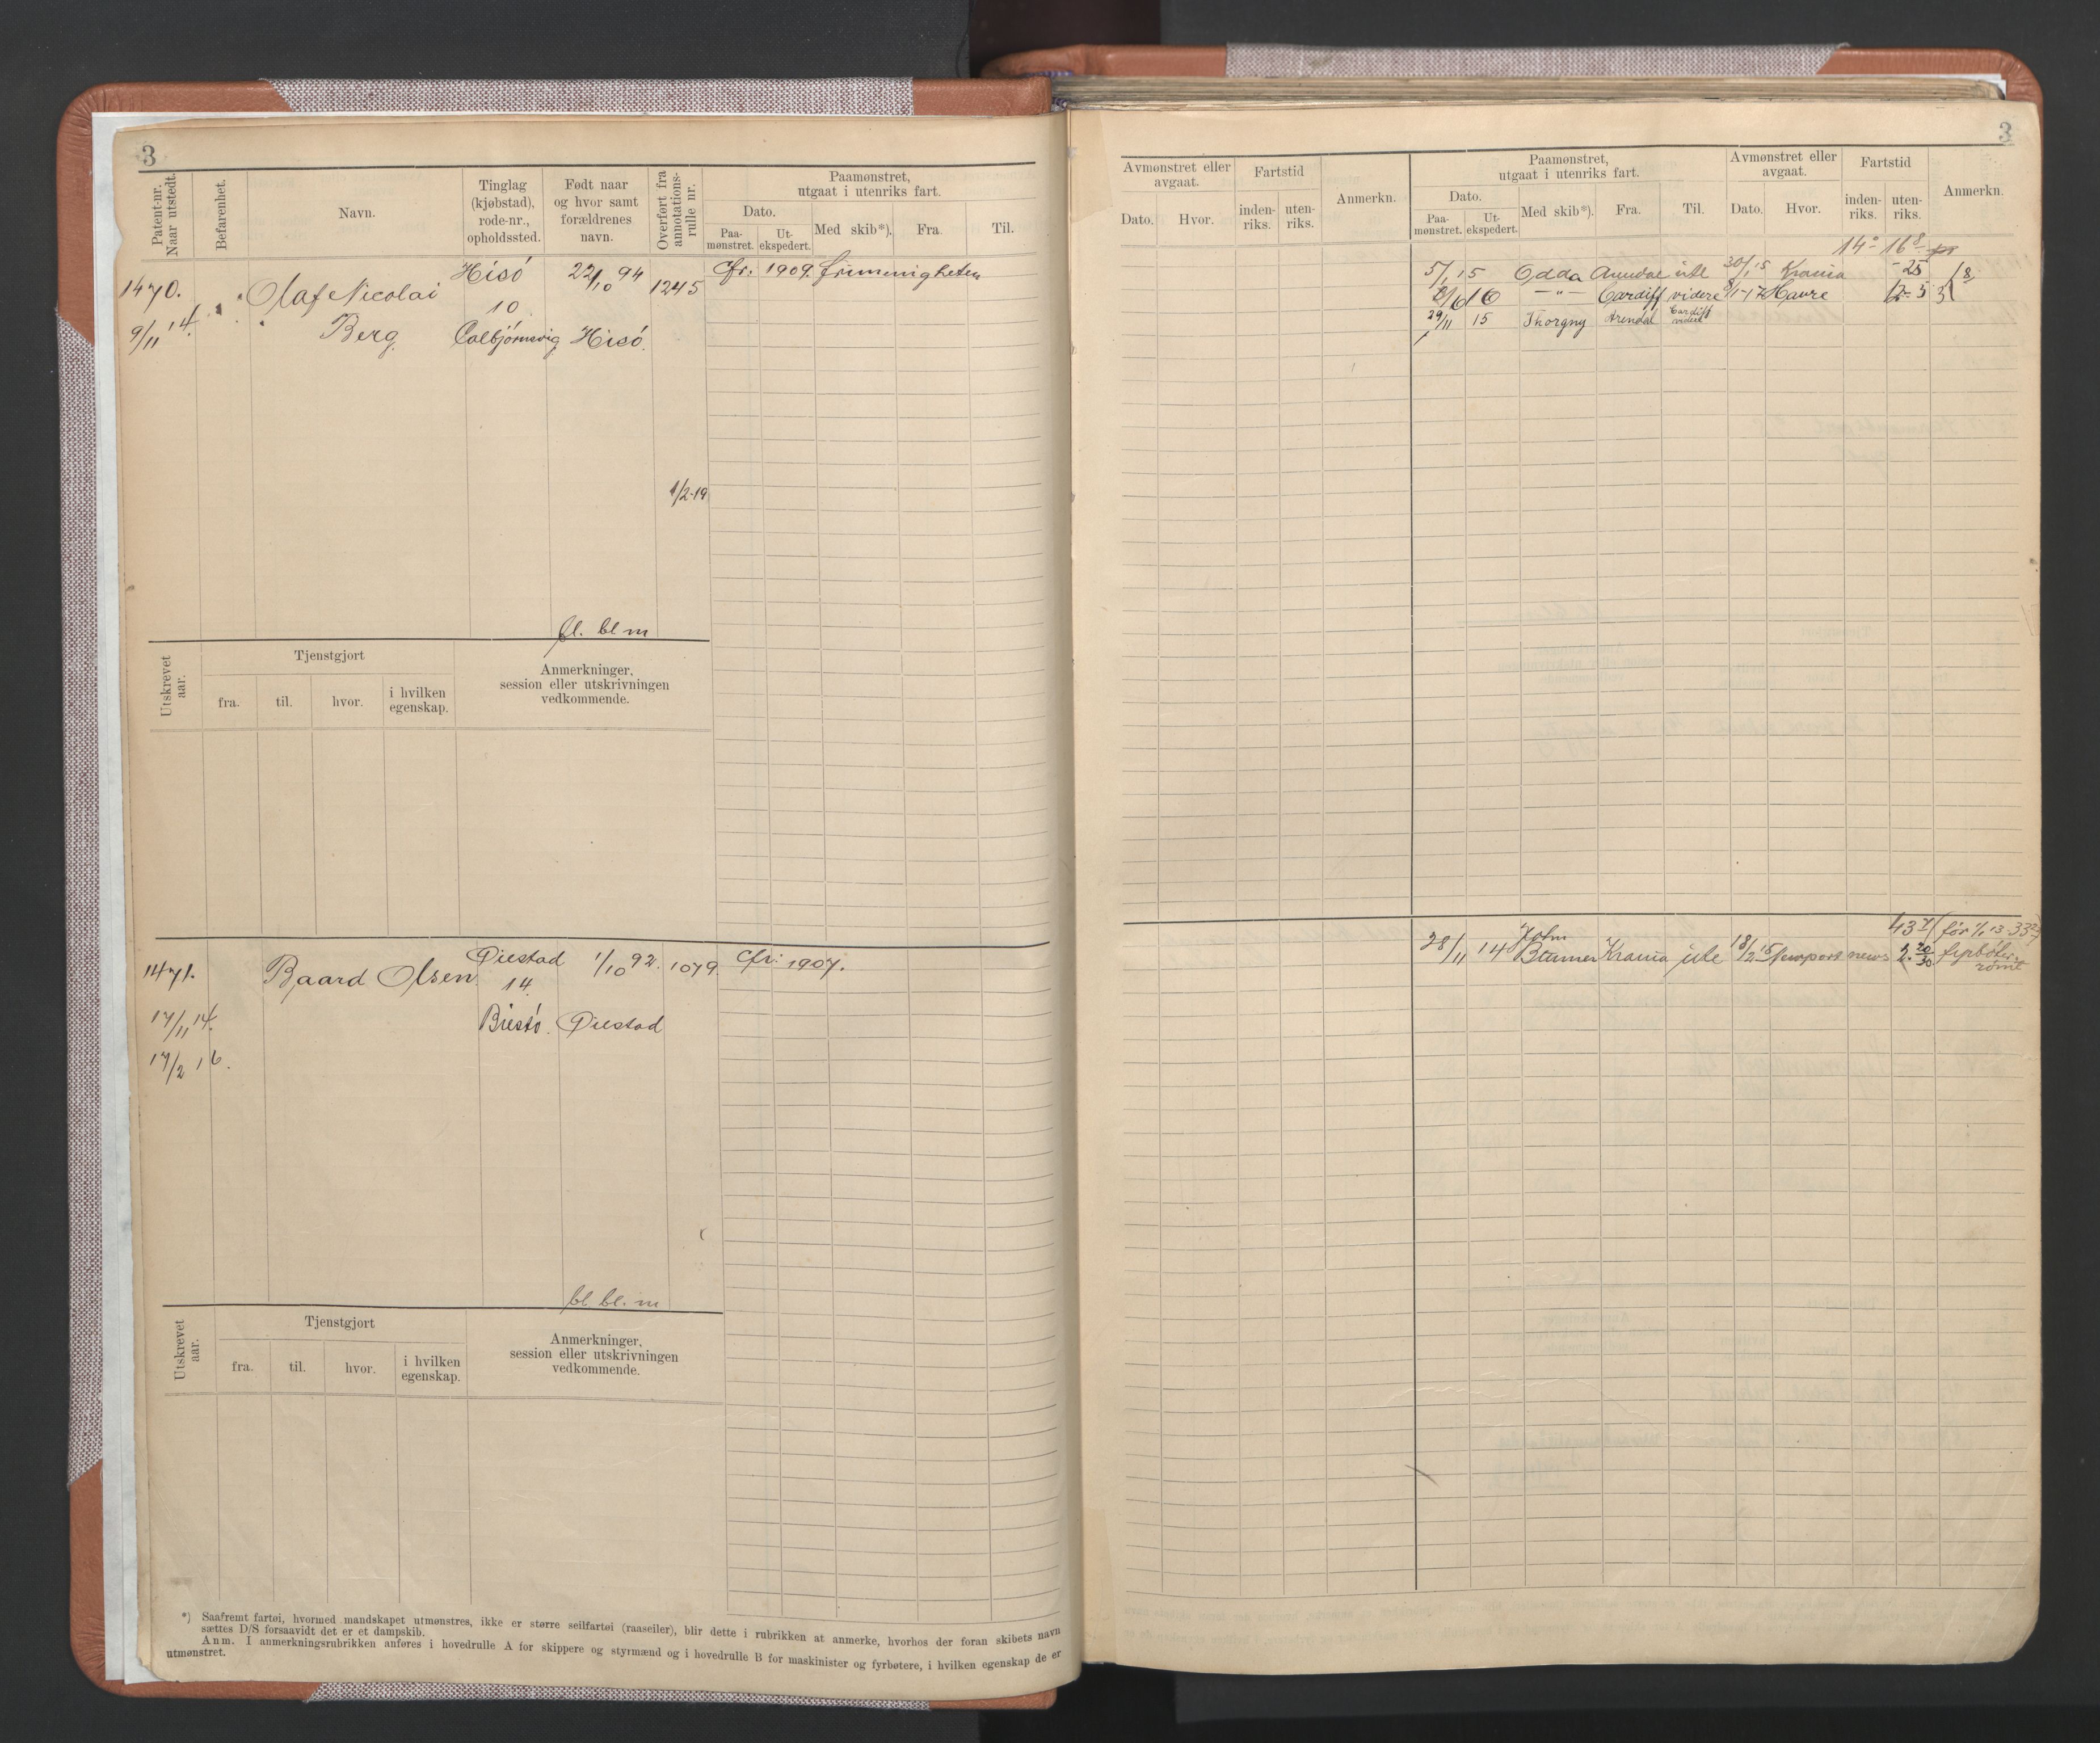 3
Patent-nr. Naar utstedt.
Befarenhet.
Navn.
Tinglag (kjøbstad), rode-nr., opholdssted.
Født naar og hvor samt forældrenes navn.
Overført fra annotations-rulle nr.
Paamønstret, utgaat i utenriks fart.
Dato.
Paa-mønstret.
Ut-ekspedert.
Med skib*).
Fra.
Til.
1470.
Olaf Nicolai
Hisö
22/10 94
1245
Cfr. 1909. frimmigheten
10
9/11 14.
Berg.
Colbjörnsvig
Hisö.
1/2-19
bl. bl m
Utskrevet aar.
Tjenstgjort
fra.
til.
hvor.
i hvilken egenskap.
Anmerkninger, session eller utskrivningen vedkommende.
1471.
Baard Olsen.
Öiestad
1/10 92.
1079.
Cfr: 1907.
14.
17/11 14.
Biestö.
Öiestad
17/2 16.
bl. bl. m
Utskrevet aar.
Tjenstgjort
fra.
til.
hvor.
i hvilken egenskap.
Anmerkninger, session eller utskrivningen vedkommende.
*) Saafremt fartøi, hvormed mandskapet utmønstres, ikke er større seilfartøi (raaseiler), blir dette i rubrikken at anmerke, hvorhos der foran skibets navn
sættes D/S forsaavidt det er et dampskib.
Anm. I anmerkningsrubrikken anføres i hovedrulle A for skippere og styrmænd og i hovedrulle B for maskinister og fyrbøtere, i hvilken egenskap de er
utmønstret.
3
Avmønstret eller avgaat.
Dato.
Hvor.
Fartstid
inden-riks.
uten-riks.
Anmerkn.
Paamønstret, utgaat i utenriks fart.
Dato.
Paa-mønstret.
Ut-ekspedert.
Med skib*).
Fra.
Til.
Avmønstret eller avgaat.
Dato.
Hvor.
Fartstid
inden-riks.
uten-riks.
Anmerkn.
5/1 15 Odda Arendal ute 30/1 15 Krania - 25
16 —"— Cardiff videre Havre
29/11 15 Thorgny Arendal Cardiff videre
28/11 14 John Blumer Krania ute 18/2 15 Newport news 2. 20/30 fyrbøter
rømt